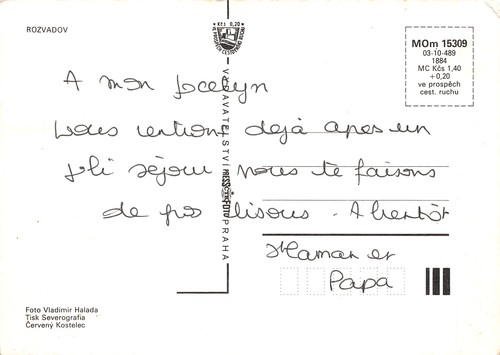 ROZVADOV
Kčs 0,20
VE PROSPĚCH CESTOVNÍHO RUCHU
MOm 15309
03-10-489
1884
MC Kčs 1,40
+0,20
ve prospěch
cest. ruchu
A mon Jocelyn
Nous rentrons dejà apres un
joli séjour nous te faisons
de gros bisous. A bientôt
Maman et
Papa
VYDAVATELSTVÍ PRESSFOTO PRAHA
Foto Vladimír Halada
Tisk Severografia
Červený Kostelec